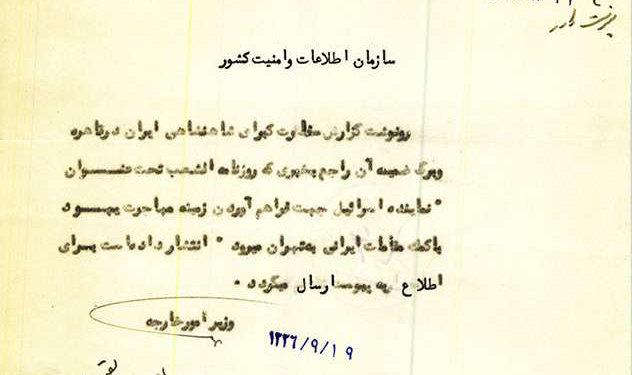 پیوست دارد
سازمان اطلاعات وامنیت کشور
رونوشت گزارش سفارت کبرای شاهنشاهی ایران درقاهره
وبرگ ضمیمه آن راجع بخبری که روزنامه الشعب تحت عنــوان
" نماینده اسرائیل جهت فراهم آوردن زمینه مهاجرت یهــود
باکمک مقامات ایرانی به تهران میرود " انتشار داده است بــرای
اطلاع به پیوست ارسال میگردد .
وزیر امورخارجه
۱۳۳۶/۹/۱۹